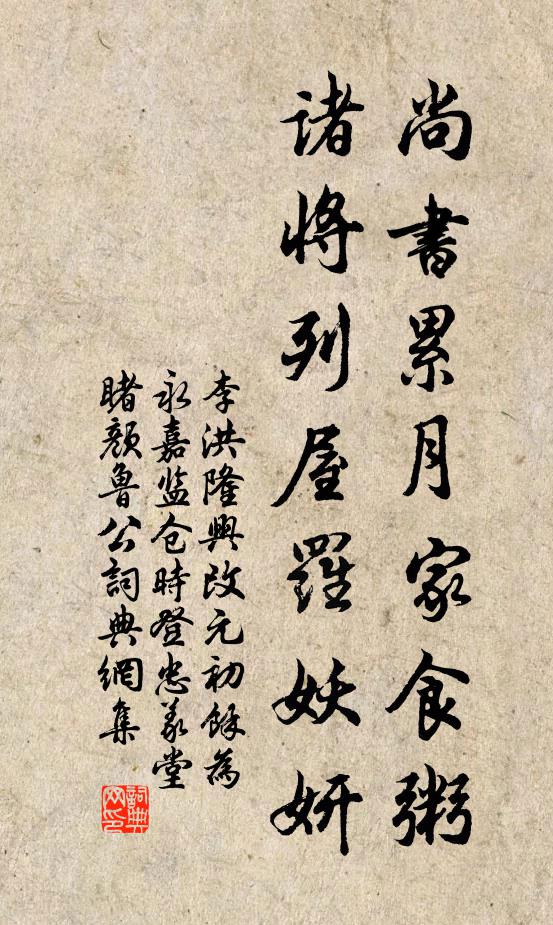 尚書累月家食粥
諸將列屋羅妖妍
李洪隆興改元初餘為
永嘉监仓時登忠義堂
睹顏魯公詞典網集
詞典网印